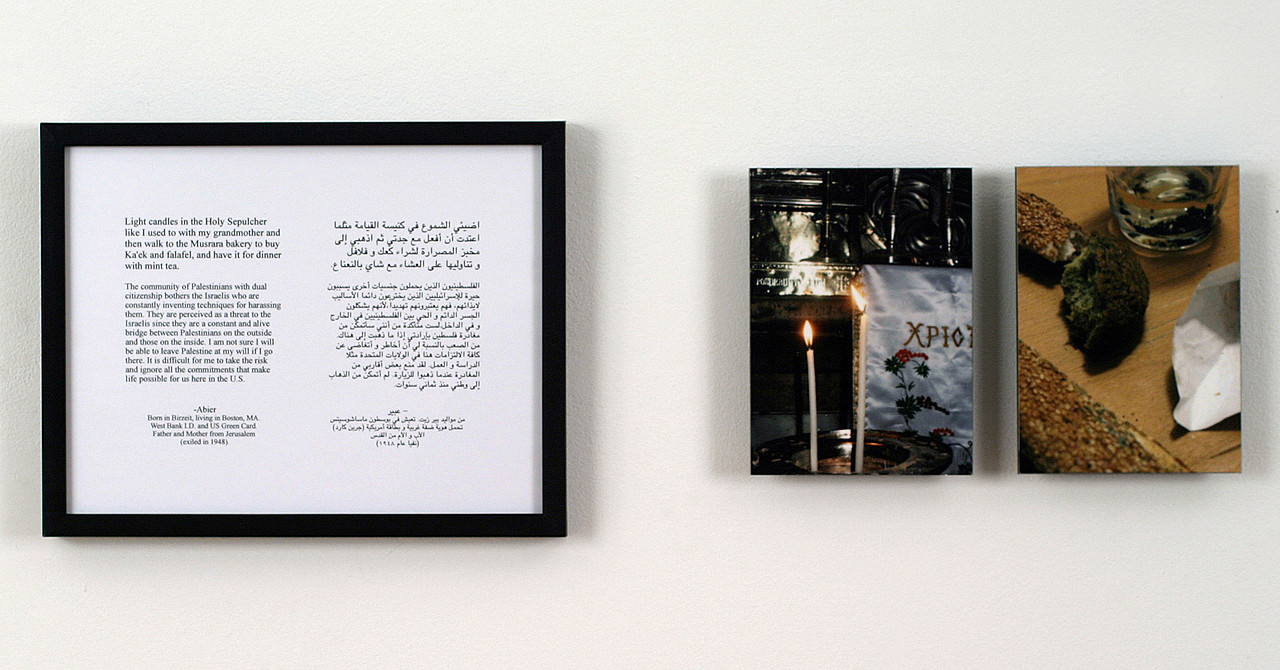 Light candles in the Holy Sepulcher
like I used to with my grandmother and
then walk to the Musrara bakery to buy
Ka'ek and falafel, and have it for dinner
with mint tea.
The community of Palestinians with dual
citizenship bothers the Israelis who are
constantly inventing techniques for harassing
them. They are perceived as a threat to the
Israelis since they are a constant and alive
bridge between Palestinians on the outside
and those on the inside. I am not sure I will
be able to leave Palestine at my will if I go
there. It is difficult for me to take the risk
and ignore all the commitments that make
life possible for us here in the U.S.
-Abier
Born in Birzeit, living in Boston, MA.
West Bank I.D. and US Green Card.
Father and Mother from Jerusalem
(exiled in 1948).
اضيئي الشموع في كنيسة القيامة مثلما
اعتدت أن أفعل مع جدتي ثم اذهبي إلى
مخبز المصرارة لشراء كعك و فلافل
و تناوليها على العشاء مع شاي بالنعناع
الفلسطينيون الذين يحملون جنسيات أخرى يسببون
حيرة للإسرائيليين الذين يخترعون دائما الأساليب
لايذائهم، فهم يعتبرونهم تهديدا لأنهم يشكلون
الجسر الدائم و الحي بين الفلسطينيين في الخارج
و في الداخل. لست متأكدة من أنني سأتمكن من
مغادرة فلسطين بإرادتي إذا ما ذهبت إلى هناك.
من الصعب بالنسبة لي أن أخاطر و أتغاضى عن
كافة الالتزامات هنا في الولايات المتحدة مثلا
الدراسة و العمل. لقد منع بعض أقاربي من
المغادرة عندما ذهبوا للزيارة. لم أتمكن من الذهاب
إلى وطني منذ ثماني سنوات.
– عبير
من مواليد بير زيت، تعيش في بوسطن، ماساشوسيتس
تحمل هوية ضفة غربية و بطاقة أمريكية (جرين كارد)
الأب و الأم من القدس
(نفيا عام ١٩٤٨)
ΧΡΙΟΤ